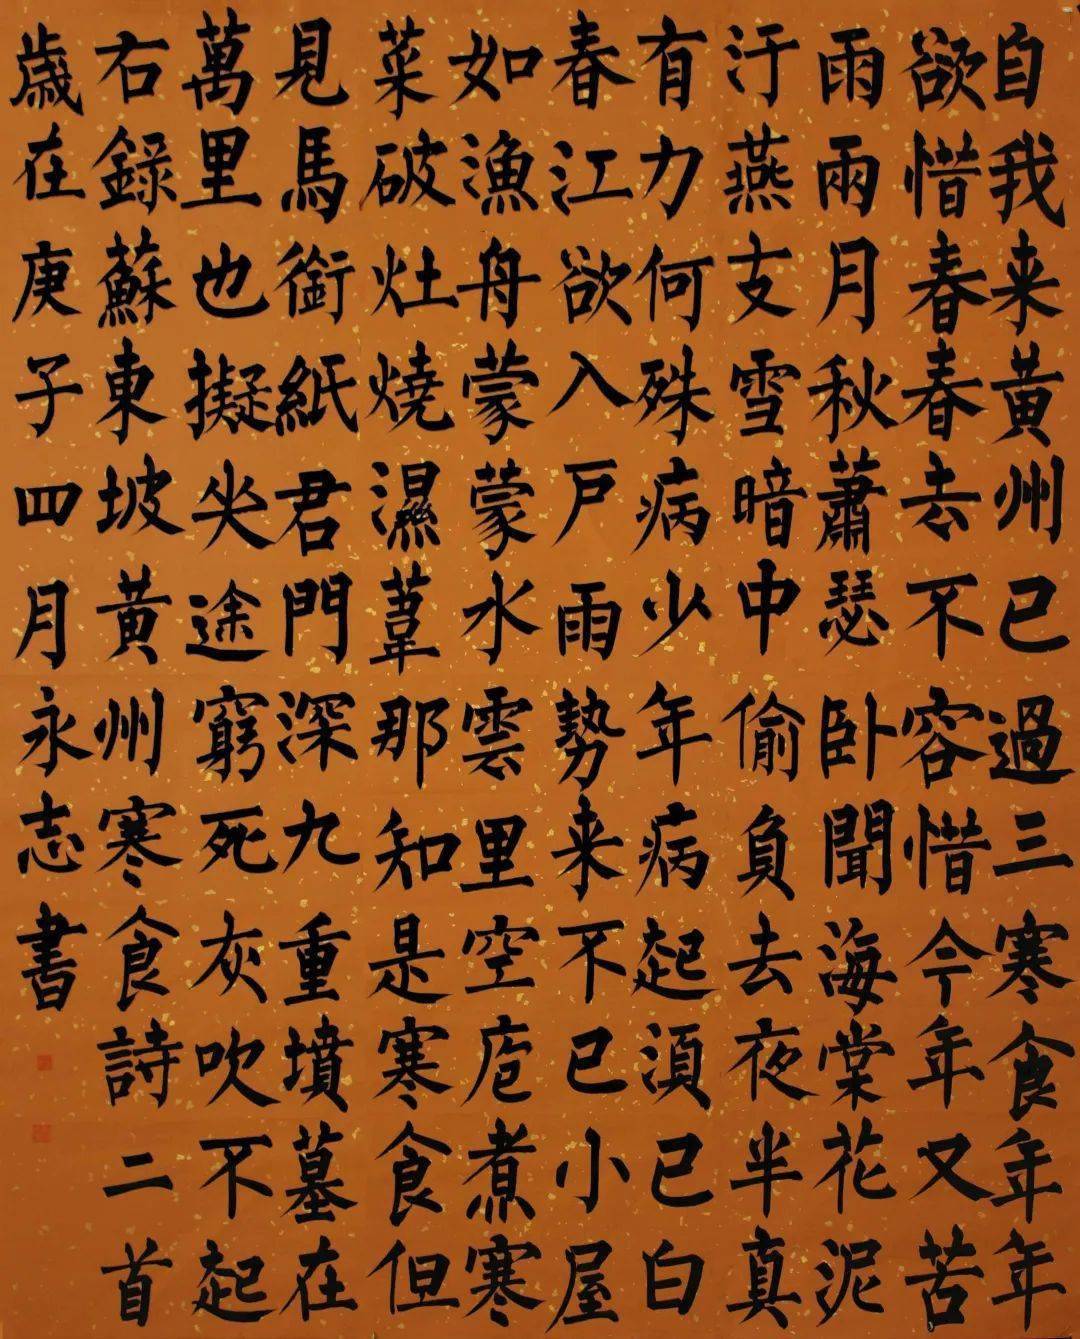 自我来黄州已過三寒食年年
欲惜春春去不容惜今年又苦
雨兩月秋蕭瑟卧聞海棠花泥
汙燕支雪暗中偷負去夜半真
有力何殊病少年病起須已白
春江欲入戶雨勢来不已小屋
如漁舟蒙蒙水雲里空庖煮寒
菜破灶燒濕葦那知是寒食但
見馬銜紙君門深九重墳墓在
萬里也擬哭途窮死灰吹不起
右録蘇東坡黄州寒食詩二首
歲在庚子四月永志書